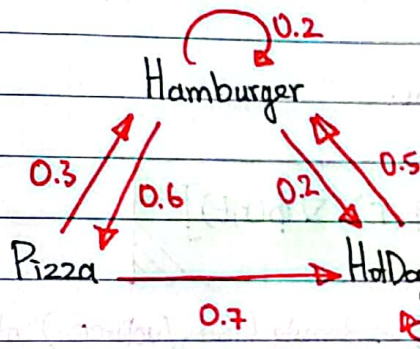 0.2
Hamburger
0.3 0.6 0.2 0.5
Pizza HotDo
0.7